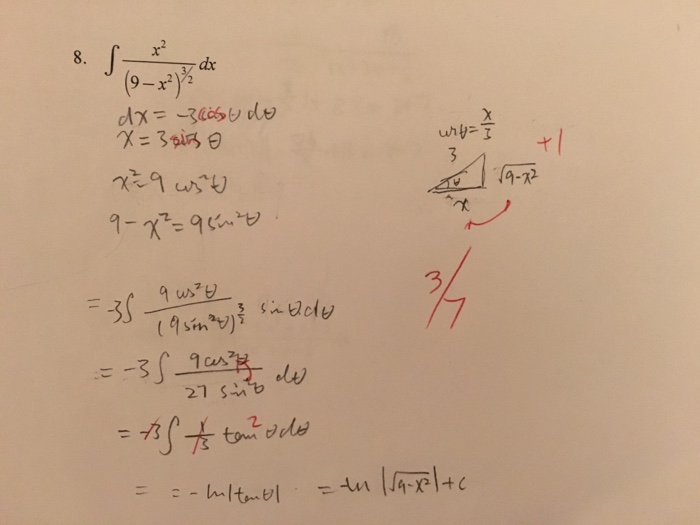 8. ∫ x² / (9 − x²)^(3/2) dx
dx = −3 cos θ dθ
x = 3 sin θ
x² = 9 cos²θ
9 − x² = 9 sin²θ
cos θ = x/3
+1
3
θ
√(9−x²)
x
3/7
= −3∫ 9 cos²θ / (9 sin²θ)^(3/2) sin θ dθ
= −3 ∫ 9 cos²θ / 27 sin²θ dθ
= −3 ∫ 1/3 tan²θ dθ
= = − ln|tan θ| = −ln |√(9−x²)| + c